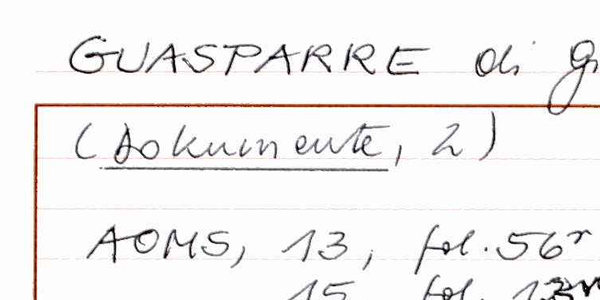 GUASPARRE di
(Dokumente, 2)
AOMS, 13, fol. 56r
15 fol.